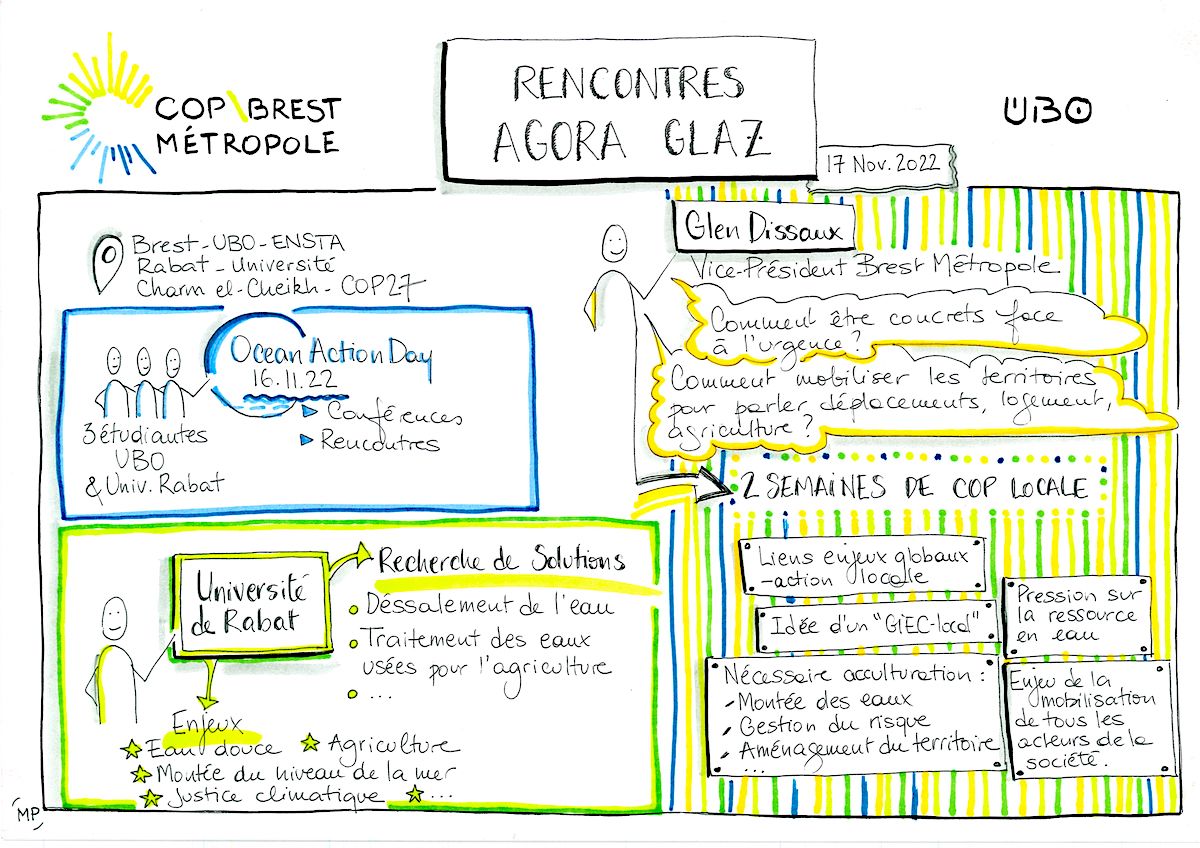 COP\BREST
MÉTROPOLE
RENCONTRES
AGORA GLAZ
UBO
17 Nov. 2022
Brest - UBO - ENSTA
Rabat - Université
Charm el-Cheikh - COP27
Ocean Action Day
16.11.22
Conférences
Rencontres
3 étudiantes
UBO
& Univ. Rabat
Université
de Rabat
Recherche de Solutions
Déssalement de l'eau
Traitement des eaux
usées pour l'agriculture
...
Enjeux
Eau douce
Agriculture
Montée du niveau de la mer
Justice climatique
...
MP
Glen Dissaux
Vice-Président Brest Métropole
Comment être concrets face
à l'urgence ?
Comment mobiliser les territoires
pour parler déplacements, logement,
agriculture ?
2 SEMAINES DE COP LOCALE
Liens enjeux globaux
-action locale
Idée d'un "GIEC-local"
Pression sur
la ressource
en eau
Nécessaire acculturation :
- Montée des eaux
- Gestion du risque
- Aménagement du territoire
...
Enjeu de la
mobilisation
de tous les
acteurs de la
société.